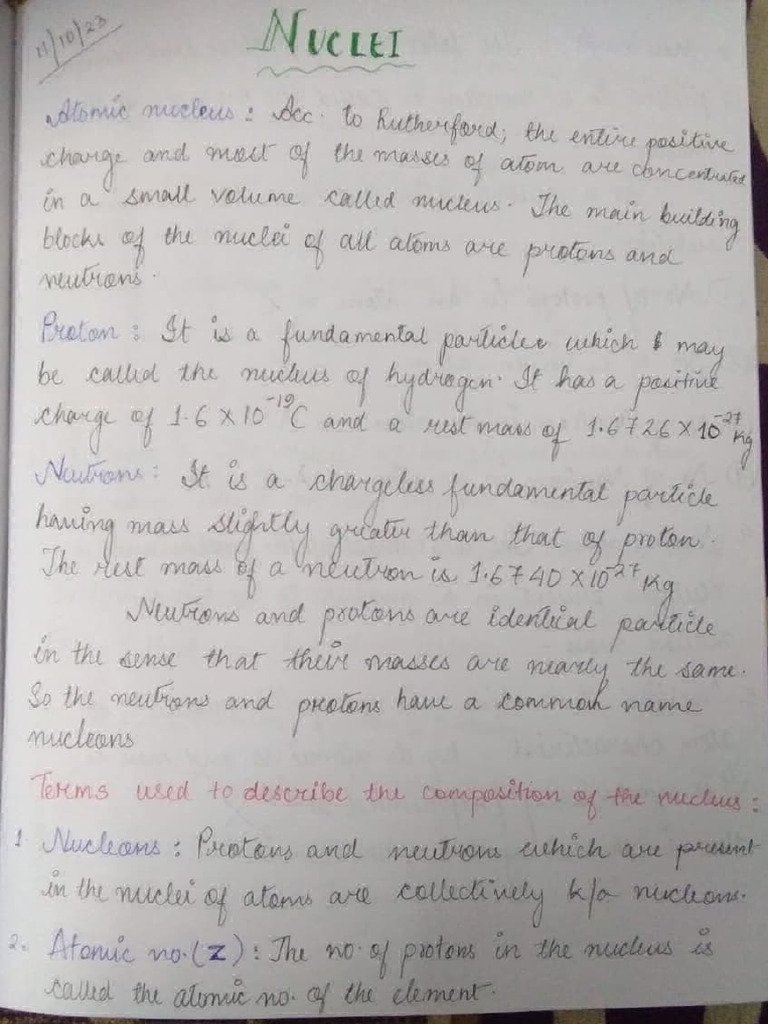 11/10/23
NUCLEI
Atomic nucleus : Acc. to Rutherford, the entire positive
charge and most of the masses of atom are concentrated
in a small volume called nucleus. The main building
blocks of the nuclei of all atoms are protons and
neutrons.
Proton : It is a fundamental particle which may
be called the nucleus of hydrogen. It has a positive
charge of 1.6 × 10⁻¹⁹C and a rest mass of 1.6726 × 10⁻²⁷ Kg
Neutrons : It is a chargeless fundamental particle
having mass slightly greater than that of proton.
The rest mass of a neutron is 1.6740 × 10⁻²⁷ Kg
Neutrons and protons are identical particle
in the sense that their masses are nearly the same.
So the neutrons and protons have a common name
nucleons
Terms used to describe the composition of the nucleus :
1. Nucleons : Protons and neutrons which are present
in the nuclei of atoms are collectively k/a nucleons.
2. Atomic no. (Z) : The no. of protons in the nucleus is
called the atomic no. of the element.